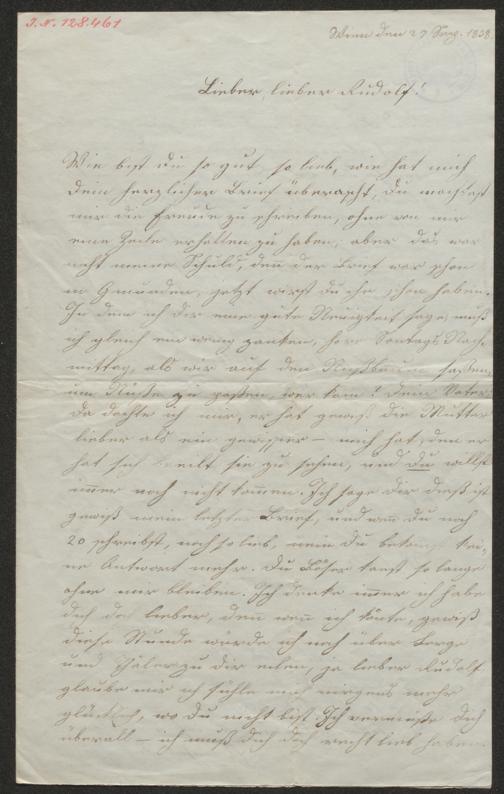 J. N. 128.461
Wien den 27 Sep. 1838.
Lieber, lieber Rudolf!
Wie bist du so gut, so lieb, wie hat mich
dein herzlicher Brief überascht, du machtest
mir die Freude zu schreiben, ohne von mir
eine Zeile erhalten zu haben, aber das war
nicht meine Schuld, den der Brief war schon
in Gmunden, jetzt wirst du ihn schon haben.
In dem ich dir eine gute Neuigkeit sage, muß
ich gleich ein wenig zanken, höre Sontags Nach-
mittag, als wir auf den Nußbaum saßen,
um Nüße zu paßen, wer kam? dein Vater
Da dachte ich mir, er hat gewiß die Mutter
lieber als ein gewisser – mich hat, den er
hat sich beeilt sie zu sehen, und du willst
immer noch nicht kommen. Ich sage dir dieß ist
gewiß mein letzter Brief, und wen du noch
20 schreibst, noch so lieb, nein du bekomst kei-
ne Antwort mehr. Du Böser kanst so lange
ohne mir bleiben. Ich denke immer ich habe
dich doch lieber, den wen ich könte, gewiß
diese Stunde würde ich noch über Berge
und Thäler zu dir eilen, ja lieber Rudolf
glaube mir ich fühle mich nirgens mehr
glücklich, wo du nicht bist. Ich vermiße dich
überall – ich muß dich doch recht lieb haben.